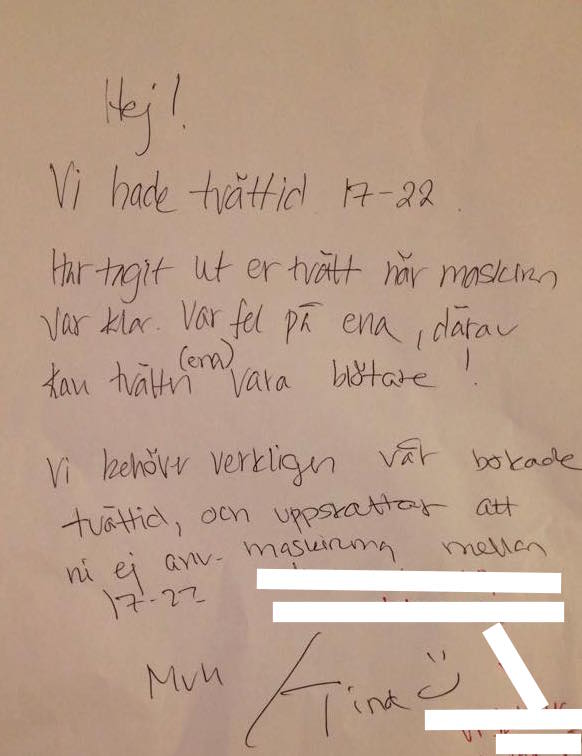 Hej!
Vi hade tvättid 17-22.
Har tagit ut er tvätt när maskinen
var klar. Var fel på ena, därav
(ena)
kan tvätten vara blötare!
Vi behöver verkligen vår bokade
tvättid, och uppskattar att
ni ej anv. maskinerna mellan
17-22
Mvh /Tina :)